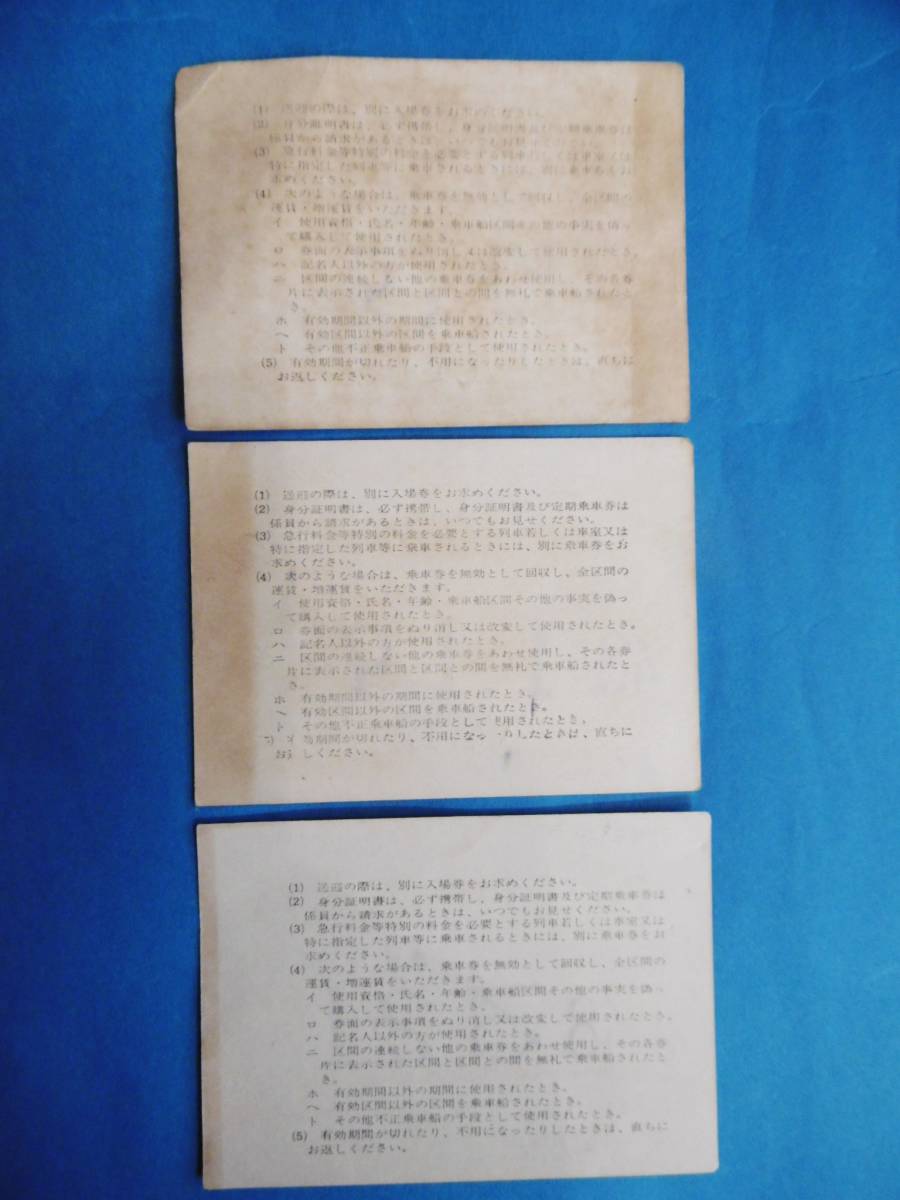 (1) 送迎の際は、別に入場券をお求めください。
(2) 身分証明書は、必ず携帯し、身分証明書及び定期乗車券は
係員から請求があるときは、いつでもお見せください。
(3) 急行料金等特別の料金を必要とする列車若しくは車室又は
特に指定した列車等に乗車されるときには、別に乗車券をお
求めください。
(4) 次のような場合は、乗車券を無効として回収し、全区間の
運賃・増運賃をいただきます。
イ 使用資格・氏名・年齢・乗車船区間その他の事実を偽っ
て購入して使用されたとき。
ロ 券面の表示事項をぬり消し又は改変して使用されたとき。
ハ 記名人以外の方が使用されたとき。
ニ 区間の連続しない他の乗車券をあわせ使用し、その各券
片に表示された区間と区間との間を無札で乗車船されたと
き。
ホ 有効期間以外の期間に使用されたとき。
ヘ 有効区間以外の区間を乗車船されたとき。
ト その他不正乗車船の手段として使用されたとき。
(5) 有効期間が切れたり、不用になったりしたときは、直ちに
お返しください。
(1) 送迎の際は、別に入場券をお求めください。
(2) 身分証明書は、必ず携帯し、身分証明書及び定期乗車券は
係員から請求があるときは、いつでもお見せください。
(3) 急行料金等特別の料金を必要とする列車若しくは車室又は
特に指定した列車等に乗車されるときには、別に乗車券をお
求めください。
(4) 次のような場合は、乗車券を無効として回収し、全区間の
運賃・増運賃をいただきます。
イ 使用資格・氏名・年齢・乗車船区間その他の事実を偽っ
て購入して使用されたとき。
ロ 券面の表示事項をぬり消し又は改変して使用されたとき。
ハ 記名人以外の方が使用されたとき。
ニ 区間の連続しない他の乗車券をあわせ使用し、その各券
片に表示された区間と区間との間を無札で乗車船されたと
き。
ホ 有効期間以外の期間に使用されたとき。
ヘ 有効区間以外の区間を乗車船されたとき。
ト その他不正乗車船の手段として使用されたとき。
期間が切れたり、不用になっりしたときは、直ちに
お しください。
(1) 送迎の際は、別に入場券をお求めください。
(2) 身分証明書は、必ず携帯し、身分証明書及び定期乗車券は
係員から請求があるときは、いつでもお見せください。
(3) 急行料金等特別の料金を必要とする列車若しくは車室又は
特に指定した列車等に乗車されるときには、別に乗車券をお
求めください。
(4) 次のような場合は、乗車券を無効として回収し、全区間の
運賃・増運賃をいただきます。
イ 使用資格・氏名・年齢・乗車船区間その他の事実を偽っ
て購入して使用されたとき。
ロ 券面の表示事項をぬり消し又は改変して使用されたとき。
ハ 記名人以外の方が使用されたとき。
ニ 区間の連続しない他の乗車券をあわせ使用し、その各券
片に表示された区間と区間との間を無札で乗車船されたと
き。
ホ 有効期間以外の期間に使用されたとき。
ヘ 有効区間以外の区間を乗車船されたとき。
ト その他不正乗車船の手段として使用されたとき。
(5) 有効期間が切れたり、不用になったりしたときは、直ちに
お返しください。